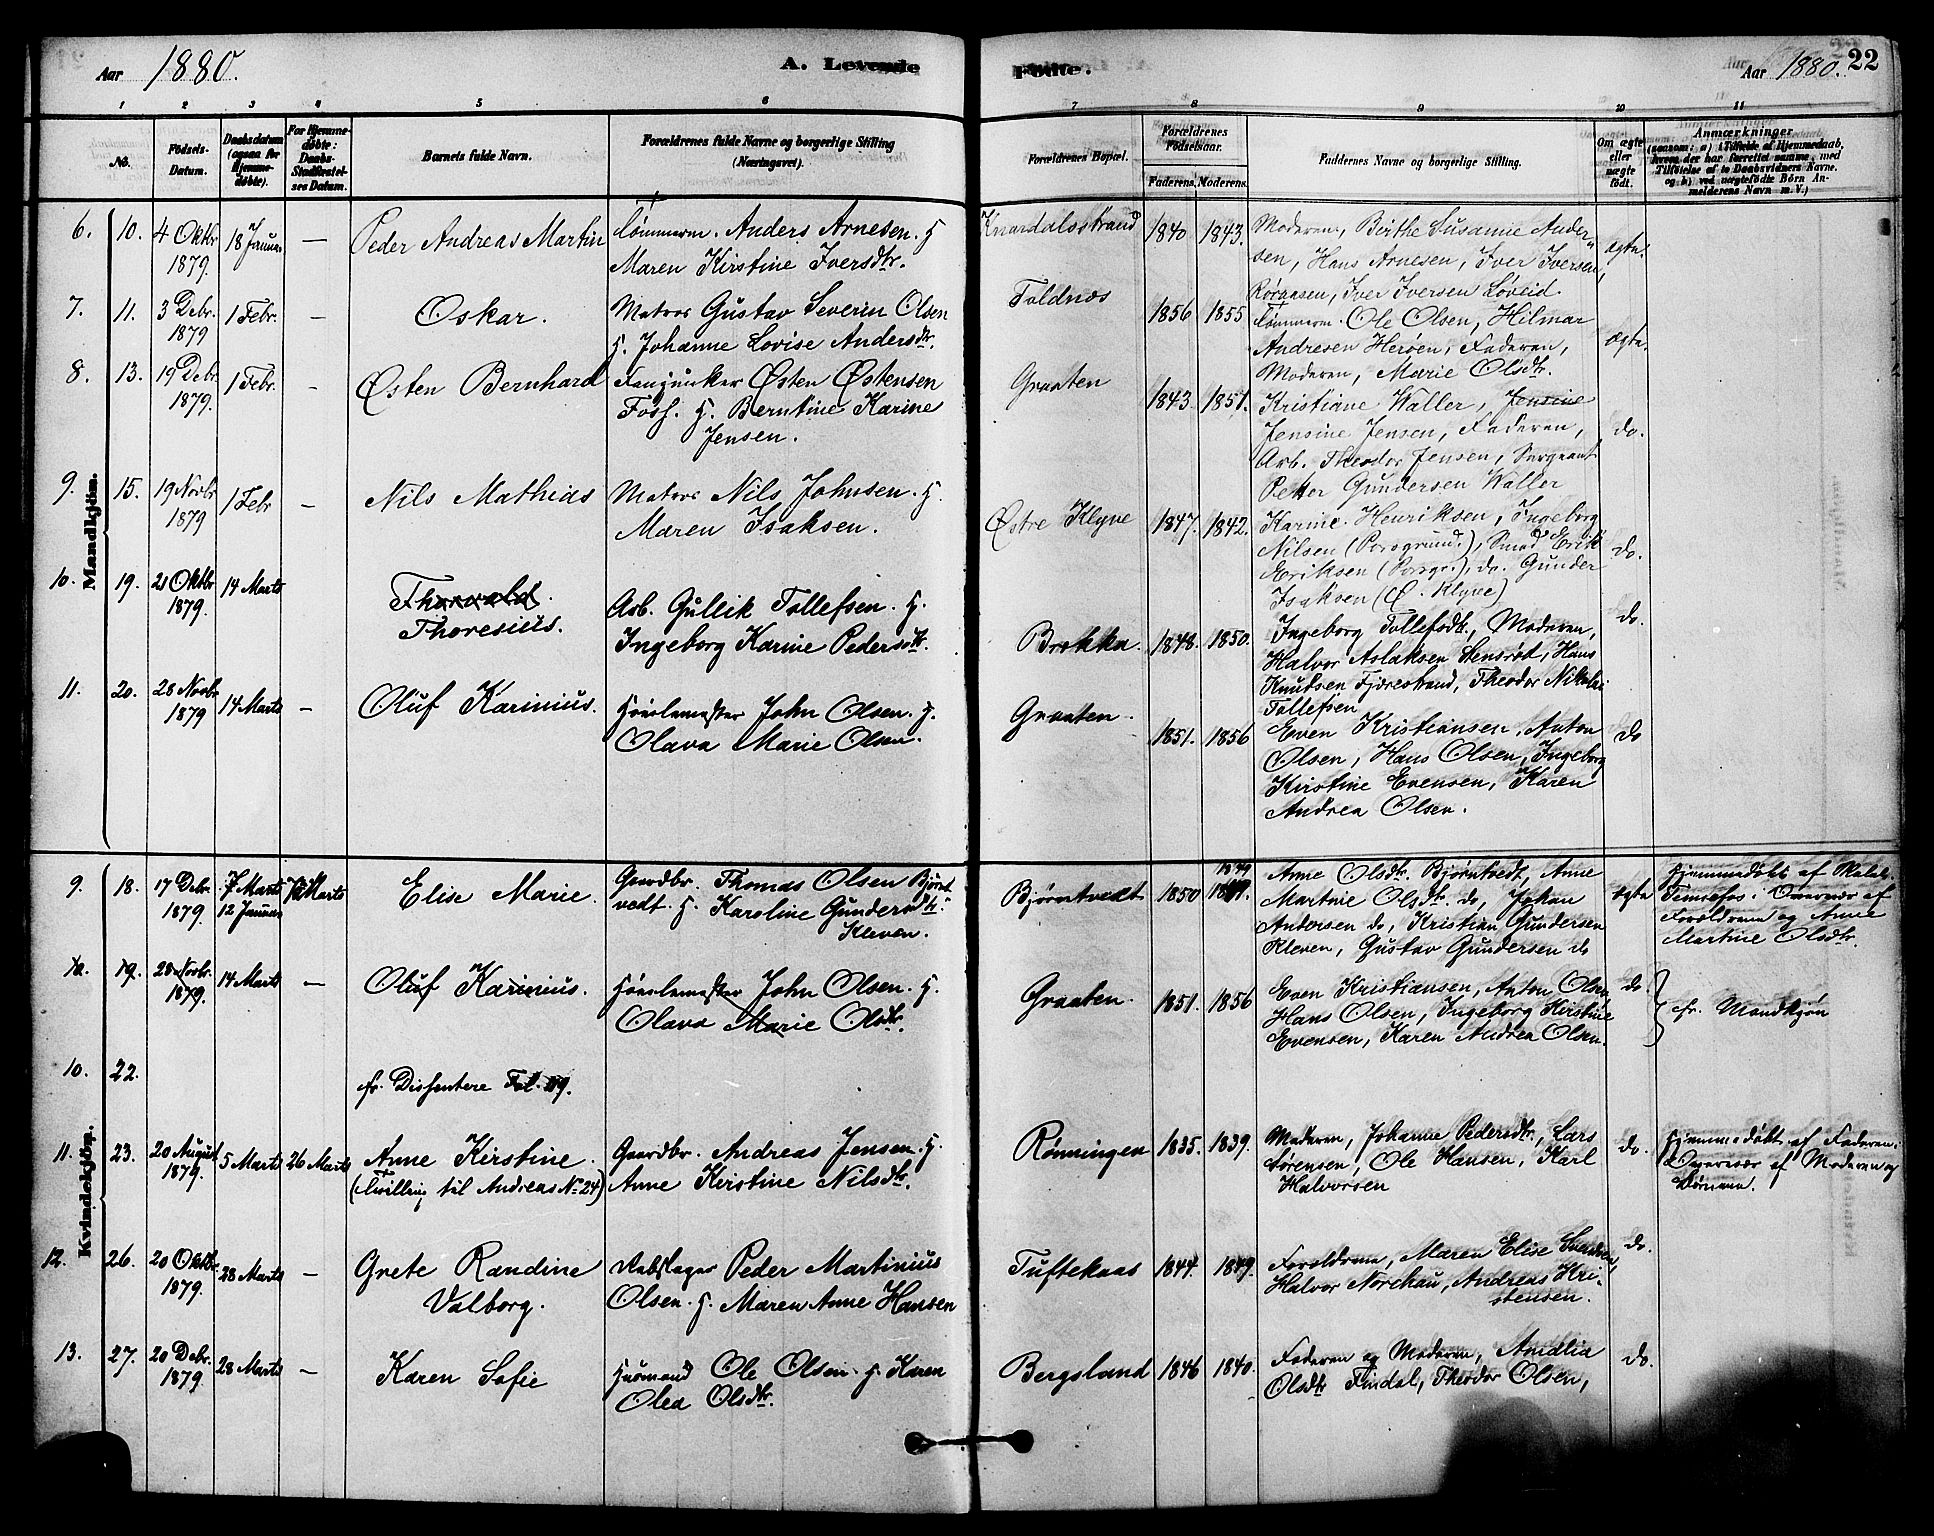 Aar 1880.
A. Levende
Fødte.
Aar 1880.
22
1 2 3 4 5 6 7 8 9 10 11
No.
Fødsels-
Datum.
Daabsdatum
(ogsaa for
Hjemme-
døbte).
For Hjemme-
døbte:
Daabs-
Stadfæstel-
ses Datum.
Barnets fulde Navn.
Forældrenes fulde Navne og borgerlige Stilling
(Næringsvei).
Forældrenes Bopæl.
Forældrenes
Fødselsaar.
Faderens. Moderens.
Faddernes Navne og borgerlige Stilling.
Om ægte
eller
uægte
født.
Anmærkninger
(saasom: a) i Tilfælde af Hjemmedaab,
hvem der har forrettet samme, med
Tilføielse af to Daabsvidners Navne,
og b) ved uægtefødte Børn An-
melderens Navn m. V.)
Mandkjøn.
6. 10. 4 Oktbr 1879. 18 Januar —
Peder Andreas Martin
Tømmerm. Anders Arnesen. H
Maren Kirstine Iversdtr.
Knardalsstrand 1840 1843.
Moderen, Birthe Susanne Ander-
sen, Hans Arnesen, Iver Iversen,
Røraasen, Iver Iversen Løveid.
ægte.
7. 11. 3 Debr. 1879 1 Febr. —
Oskar.
Matros Gustav Severin Olsen
H. Johanne Lovise Andersdtr.
Toldnæs 1856 1855
Tømmerm. Ole Olsen, Hilmar
Andresen Herøen, Faderen,
Moderen, Marie Olsdtr.
ægte.
8. 13. 19 Debr. 1879. 1 Febr. —
Østen Bernhard
Fanejunker Østen Østensen
Foss. H. Berntine Karine
Jensen.
Graaten 1843 1851.
Kristiane Waller, Jensine
Jensine Jensen, Faderen,
Arb. Theodor Jensen, Sergeant
Petter Gundersen Waller
do.
9. 15. 19 Novbr 1879. 1 Febr —
Nils Mathias
Matros Nils Johnsen. H.
Maren Isaksen.
Østre Klyve 1847. 1842.
Karine Henriksen, Ingeborg
Nilsen (Porsgrund.), Smed Erik
Eriksen (Porsgr.), do. Gunder
Isaksen (Ø. Klyve)
do.
10. 19. 21 Oktbr 1879. 14 Marts
Thorvald.
Thoresius.
Arb. Gullik Tollefsen. H.
Ingeborg Karine Pedersdtr.
Brekka. 1848. 1850.
Ingeborg Tollefsdtr., Moderen,
Halvor Aslaksen Stensrød, Hans
Knudsen Fjærestrand, Theodor Nikolai
Tollefsen
do.
11. 20. 28 Novbr 1879 14 Marts —
Oluf Karinius.
John Olsen. H.
Olava Marie Olsen.
Graaten. 1851. 1856
Even Kristiansen, Anton
Olsen, Hans Olsen, Ingeborg
Kirstine Evensen, Karen
Andrea Olsen.
do
Kvindekjön.
9. 18. 17 Debr. 1879. 7 Marts 12 Januar
Marts
Elise Marie.
Gaardbr. Thomas Olsen Bjørnt-
vedt. H. Karoline Gundersdtr.
Kleven.
Bjørntvedt 1850 1849
Anne Olsdtr. Bjørntvedt, Anne
Martine Olsdtr. do, Johan
Andersen do, Kristian Gundersen
Kleven, Gustav Gundersen do
ægte
Hjemmedøbt af
i Overvær af
Forældrene og Anne
Martine Olsdtr.
10. 19. 28 Novbr. 1879. 14 Marts —
Oluf Karinius.
John Olsen. H.
Olava Marie Olsdtr.
Graaten. 1851. 1856
Even Kristiansen, Anton Olsen
Hans Olsen, Ingeborg Kirstine
Evensen, Karen Andrea Olsen.
do.
cfr. Mandkjøn
10. 22.
cfr. Dissentere Fol.
11. 23. 20 August 1879. 5 Marts 26 Marts
Anne Kirstine.
(Tvilling til Andreas No 24)
Gaardbr. Andreas Jensen. H.
Anne Kirstine Nilsdtr.
Rønningen 1835. 1839.
Moderen, Johanne Pedersdtr, Lars
Sørensen, Ole Hansen, Karl
Halvorsen
do.
Hjemmedøbt af Faderen.
Overvær af Moderen og
12. 26. 20 Oktbr. 1879. 28 Marts —
Grete Randine
Valborg.
Rebslager Peder Martinius
Olsen. H. Maren Anne Hansen
Tuftekaas 1844. 1849.
Forældrene, Maren Elise Svendsen,
Halvor Norehau, Andreas Kri-
stensen.
do.
13. 27. 20 Debr. 1879. 28 Marts —
Karen Sofie
Husmand Ole Olsen. H. Karen
Olea Olsdtr.
Bergsland 1846 1840.
Faderen og Moderen, Amalia
Olsdtr Findal, Theodor Olsen,
do.